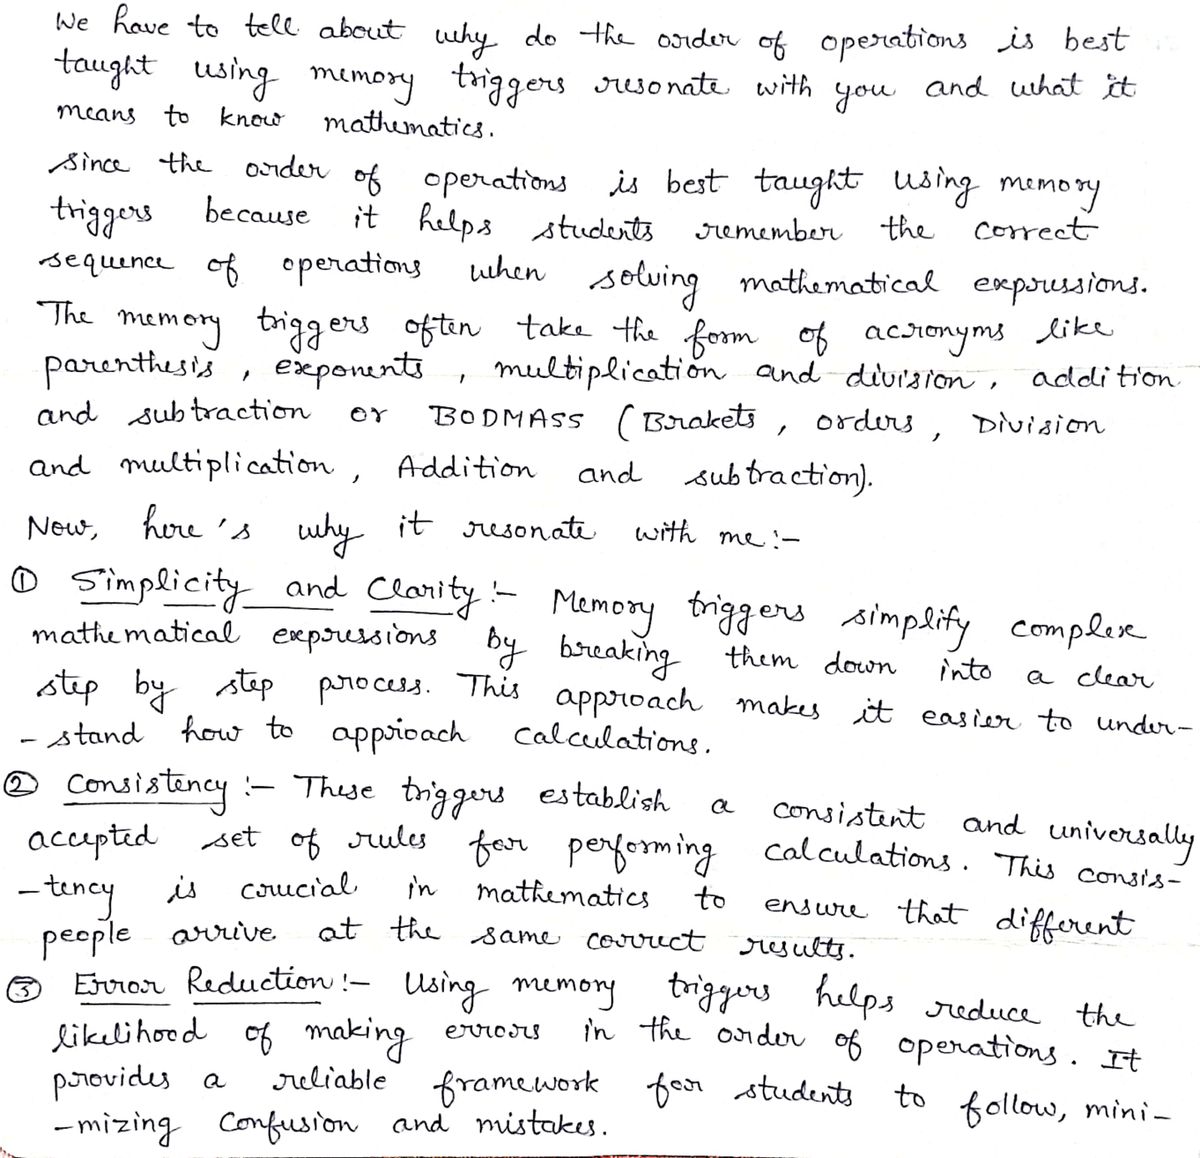 We have to tell about why do the order of operations is best
taught using memory triggers resonate with you and what it
means to know mathematics.
Since the order of operations is best taught using memory
triggers because it helps students remember the correct
sequence of operations when solving mathematical expressions.
The memory triggers often take the form of acronyms like
parenthesis, exponents, multiplication and division, addition
and subtraction or BODMASS (Brakets, orders, Division
and multiplication, Addition and subtraction).
Now, here's why it resonate with me:-
① Simplicity and Clarity:- Memory triggers simplify complex
mathematical expressions by breaking them down into a clear
step by step process. This approach makes it easier to under-
-stand how to approach calculations.
② Consistency:- These triggers establish a consistent and universally
accepted set of rules for performing calculations. This consis-
-tency is crucial in mathematics to ensure that different
people arrive at the same correct results.
③ Error Reduction:- Using memory triggers helps reduce the
likelihood of making errors in the order of operations. It
provides a reliable framework for students to follow, mini-
-mizing Confusion and mistakes.